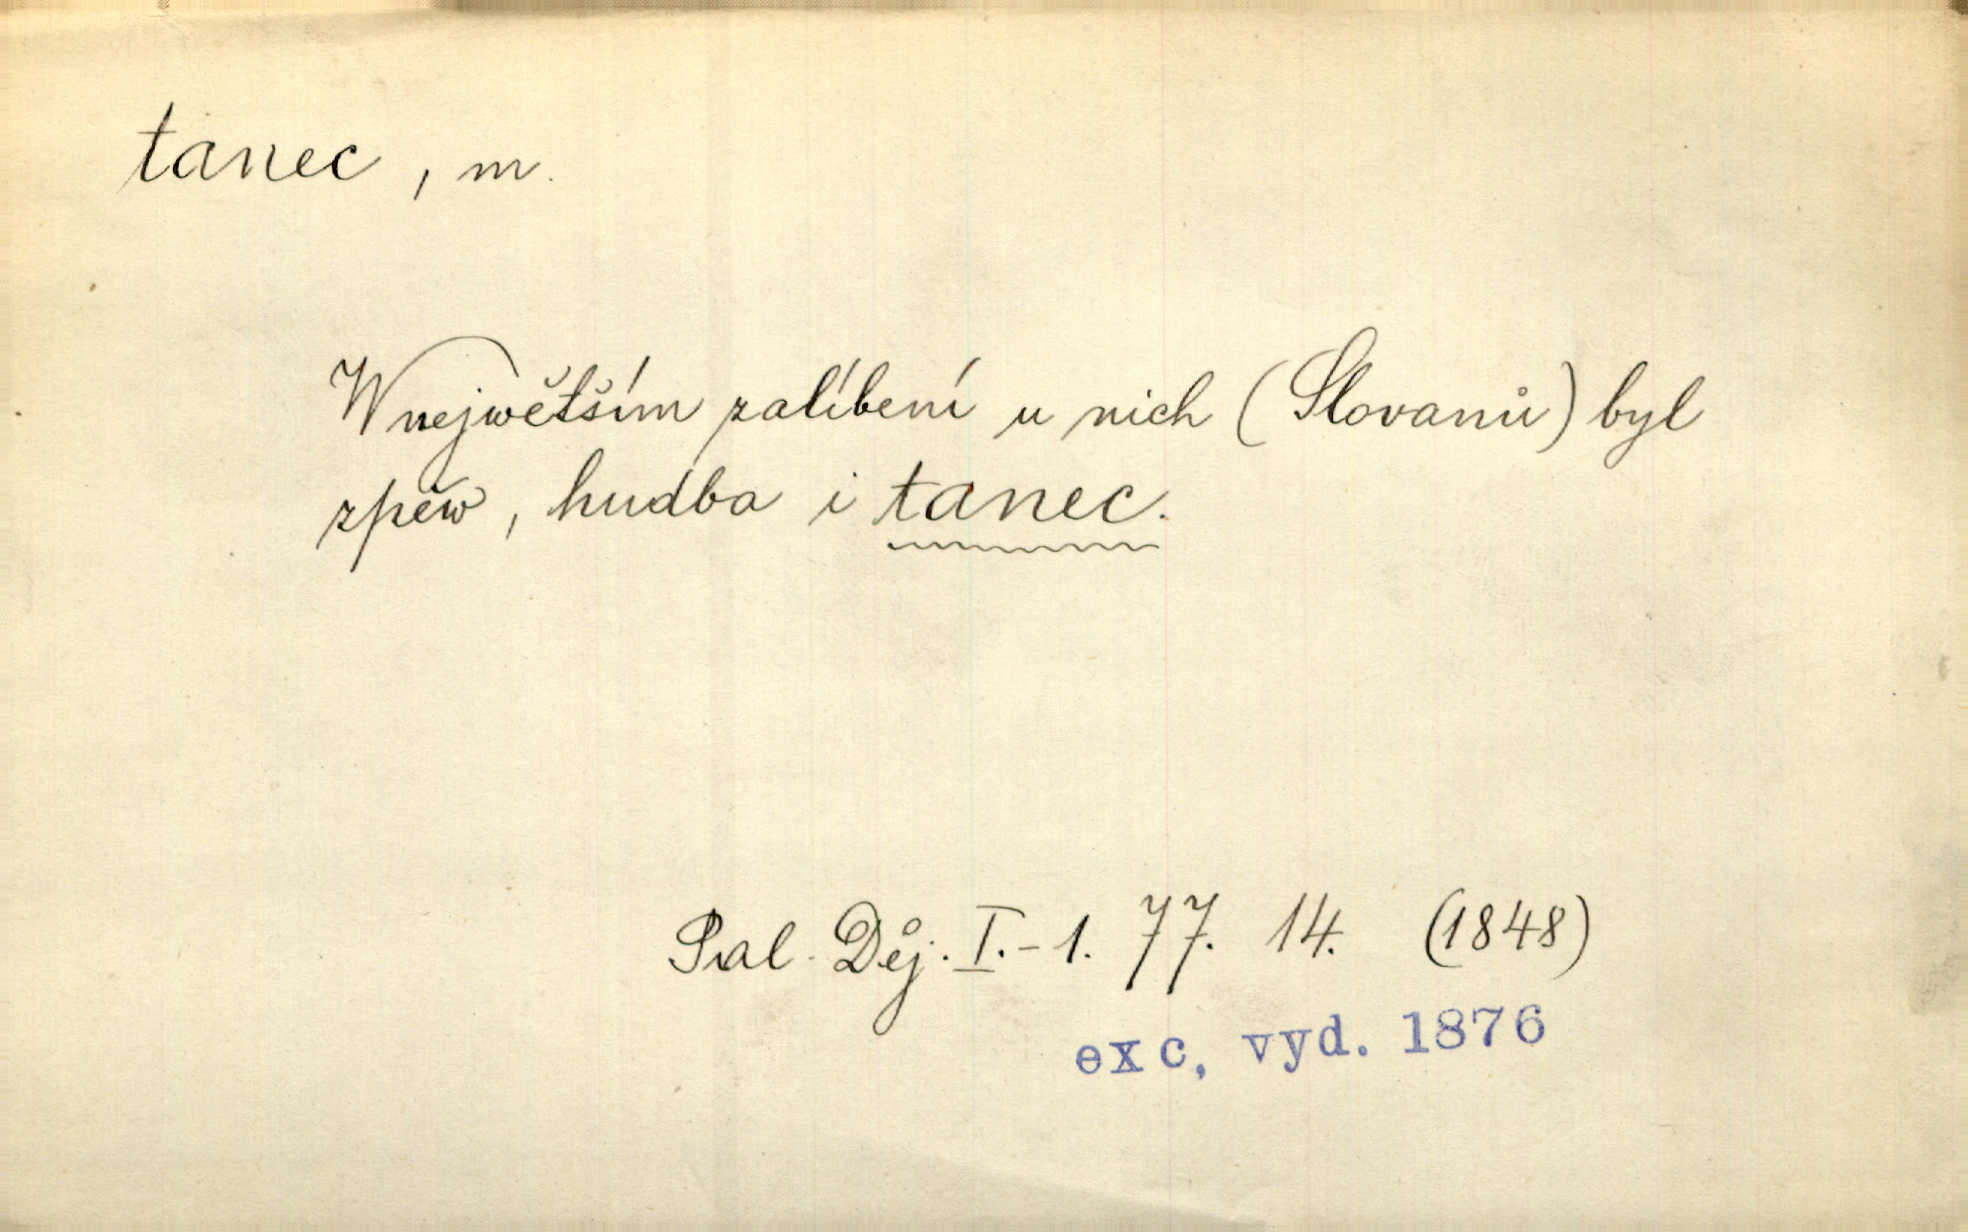 tanec, m.
W největším zalíbení u nich (Slovanů) byl
zpěw, hudba i tanec.
Pal. Děj. I.-1. 77. 14. (1848)
exc, vyd. 1876